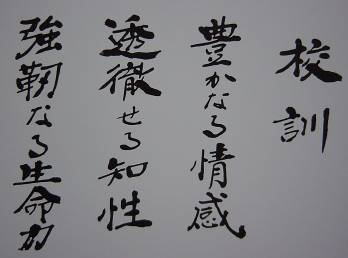 校訓
豊かなる情感
透徹せる知性
強靭なる生命力